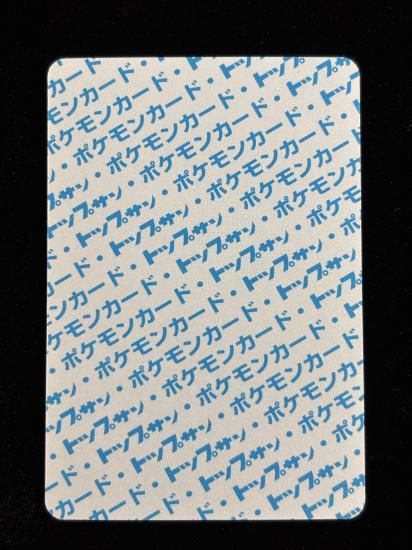 ンカード・
ポケモンカード・トップサン
サン・ポケモンカード・トップサン・
トップサン・ポケモンカード・トップサン
・トップサン・ポケモンカード・
ード・トップサン・ポケモンカード
カード・トップサン・ポケモンカード
モンカード・トップサン・ポケモン
ポケモンカード・トップサン・ポケ
・ポケモンカード・トップサン・
トップサン・ポケモンカード・トップサン
・トップサン・ポケモンカード・
カード・トップサン・ポケモンカード
トップサン・ポケモン